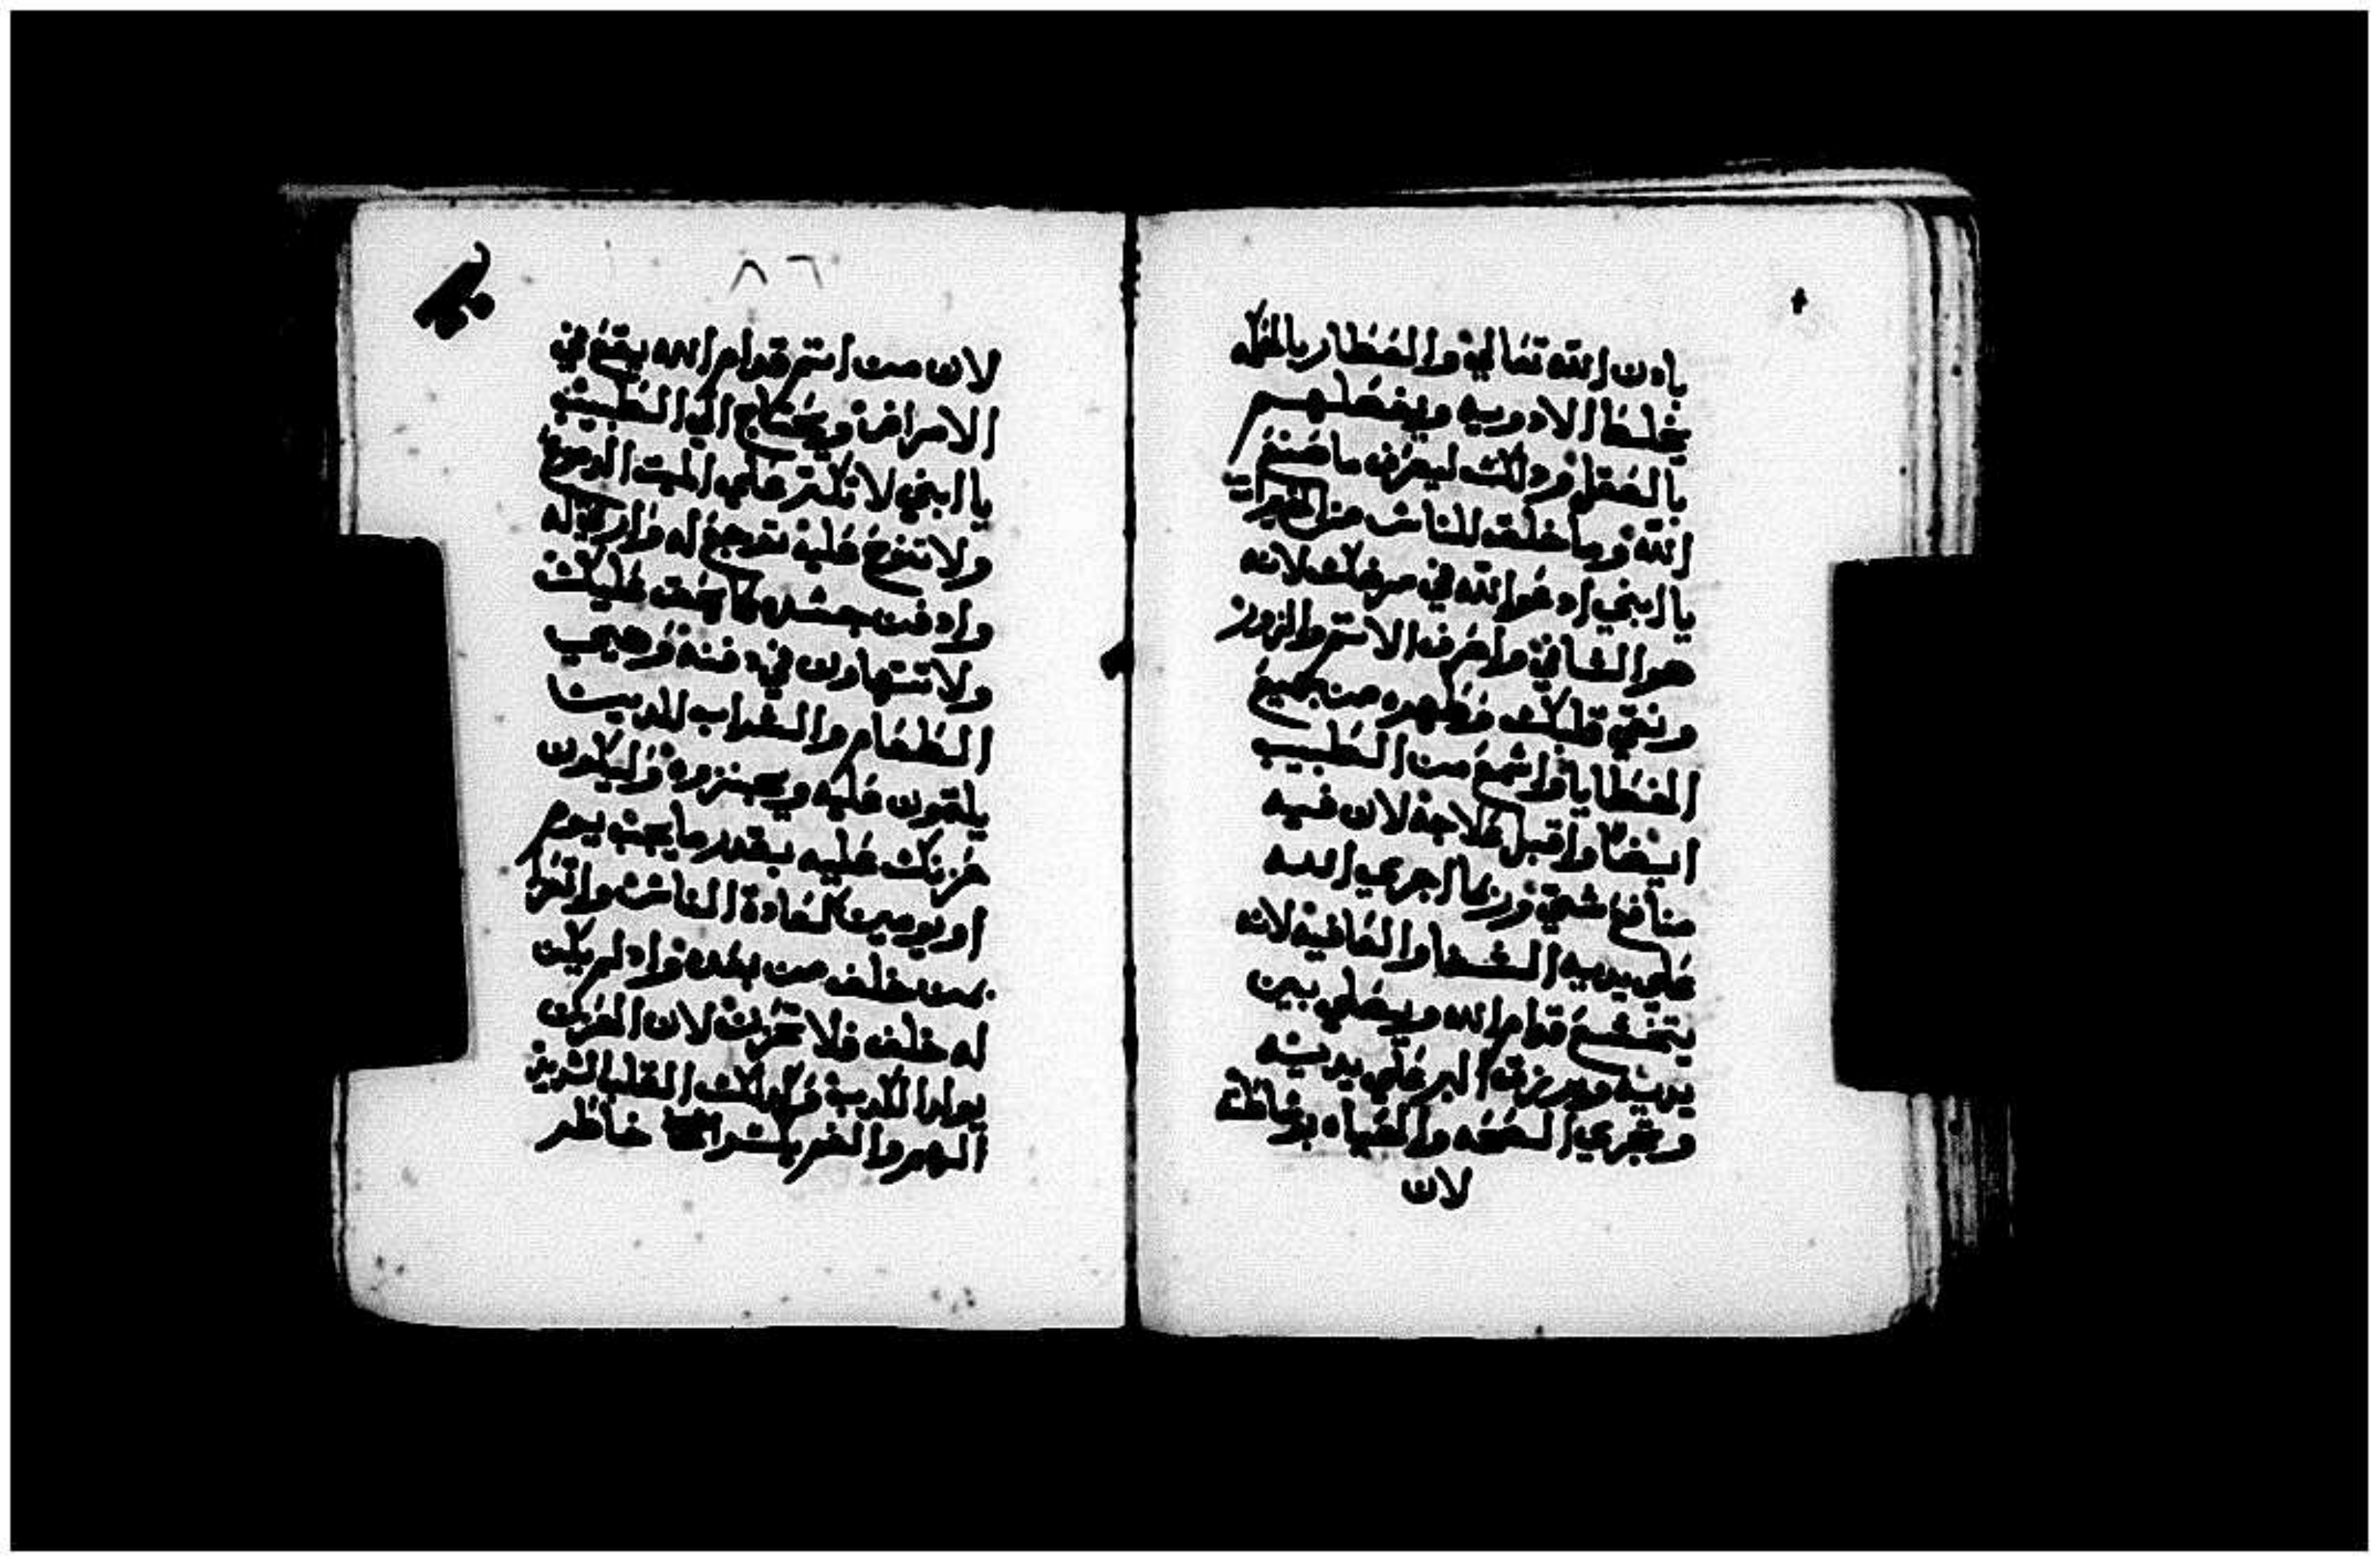 بادن الله تعالي والعطار بالعقل
يخلط الادويه ويفصلهم
بالعقل ودلك ليعرف ما صنع
الله وما خلق للناس من الخيرات
يا ابني ادعوا الله في مرضك لانه
هوا الشافي واعرف الاتم والزور
ونقي قلبك وطهره من جميع
الخطايا واسمع من الطبيب
ايضا واقبل علاجه لان فيه
منافع شتي وربما اجري الله
علي يديه الشفا والعافيه لانه
يتخشع قدام الله ويصلي بين
يديه ويرزق البر علي يديه
وتجري الصحه والحياه
لان
٨٦
لان من اتم قدام الله يقع في
الامراض ويحتاج الي الطبيب
يا ابني لا تكتر علي الميت الدموع
ولا تنوح عليه توجع له وارتي له
وادفن جسده كما يحق عليك
ولا تتهاون في دفنه وهيي
الطعام والشراب للدين
يلتقون عليه ويجنزوه وليكون
حزنك عليه بقدر ما يجب يوم
او يومين كعادة الناس واتعزا
بمن خلف من بعده واد لم يكن
له خلف فلا تحزن لان الحزن
يولد الكدب وكدلك القلب الحزين
الهم والغم خاطر